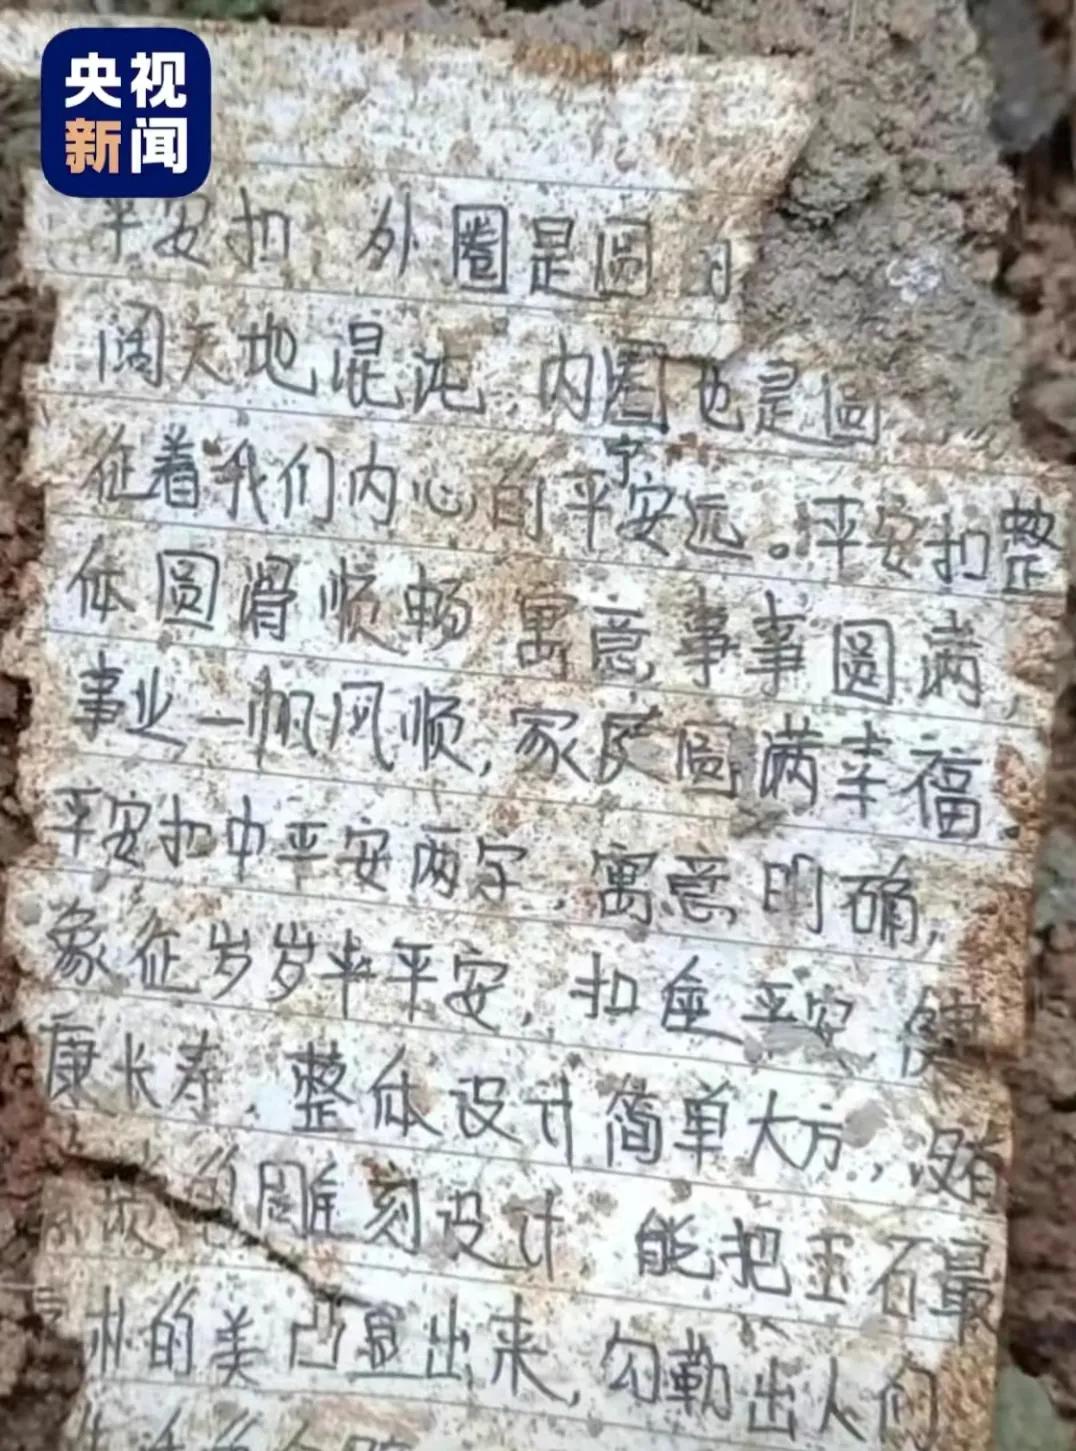 央视
新闻
平安扣 外圈是圆
阔天地混沌 内圈也是圆
征着我们内心的平安远。平安扣整
宁
体圆滑顺畅 寓意事事圆满,
事业一帆风顺,家庭圆满幸福.
平安扣中平安两字,寓意明确,
象征岁岁平安,扣座平安,健
康长寿.整体设计简单大方,,没有
的雕刻设计 能把玉石最
的美凸显出来,勾勒出人们